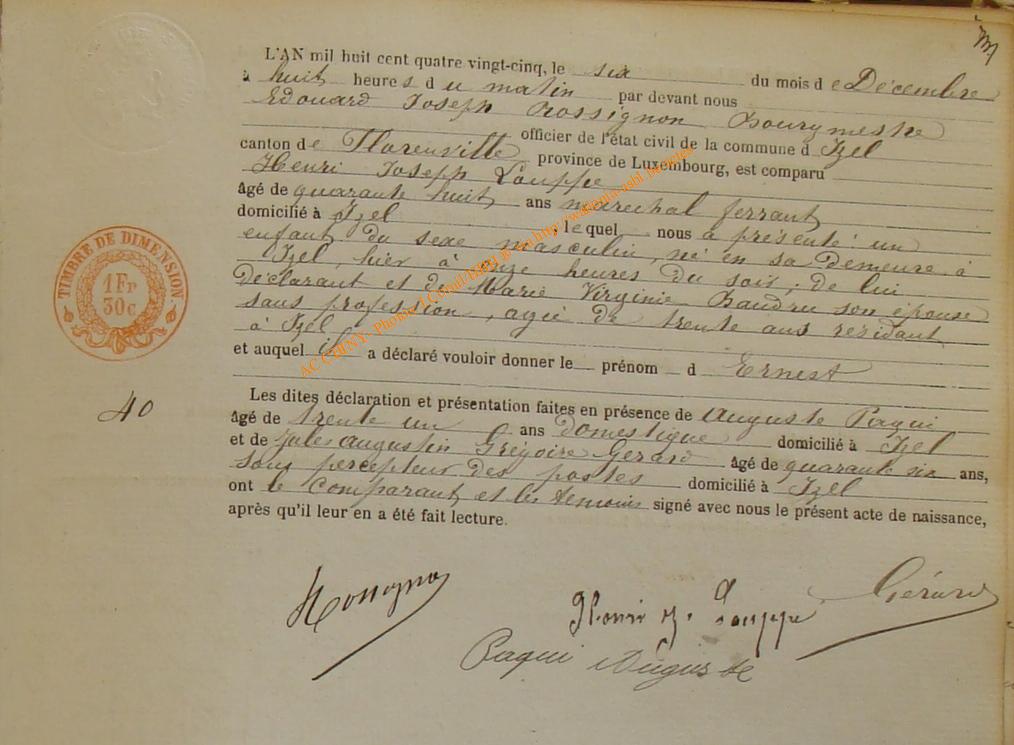 L'AN mil huit cent quatre vingt-cinq, le six du mois de Décembre
à huit heures du matin par devant nous
Edouard Joseph Rossignon Bourgmestre
officier de l'état civil de la commune d Izel
canton de Florenville province de Luxembourg, est comparu
Henri Joseph Louppe
âgé de quarante huit ans maréchal ferrant
domicilié à Izel lequel nous a présenté un
enfant du sexe masculin, né en sa demeure à
Izel, hier à onze heures du soir, de lui
déclarant et de Marie Virginie Baudru son épouse
sans profession, agée de trente ans résidant
à Izel
et auquel il a déclaré vouloir donner le prénom d Ernest
Les dites déclaration et présentation faites en présence de Auguste Paqui
âgé de trente un ans domestique domicilié à Izel
et de Jules Augustin Grégoire Gerard âgé de quarante six ans,
sous percepteur des postes domicilié à Izel
ont le comparant et les témoins signé avec nous le présent acte de naissance,
après qu'il leur en a été fait lecture.
TIMBRE DE DIMENSION
1 Fr
30 c
40
Rossignon
Henri J. Louppe
Gérard
Paqui Auguste
AC CHINY- Photos